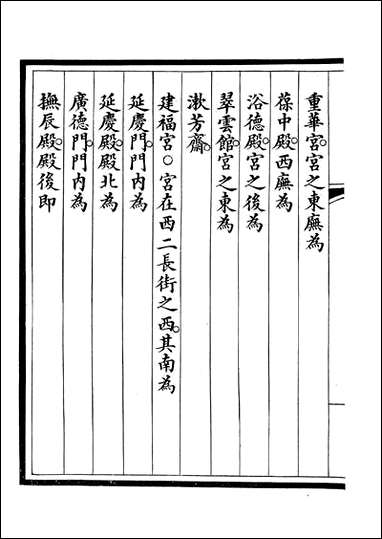 重華宮宮之東廡為
葆中殿西廡為
浴德殿宮之後為
翠雲館宮之東為
漱芳齋
建福宮○宮在西二長街之西其南為
延慶門門内為
延慶殿殿北為
廣德門門内為
撫辰殿殿後即